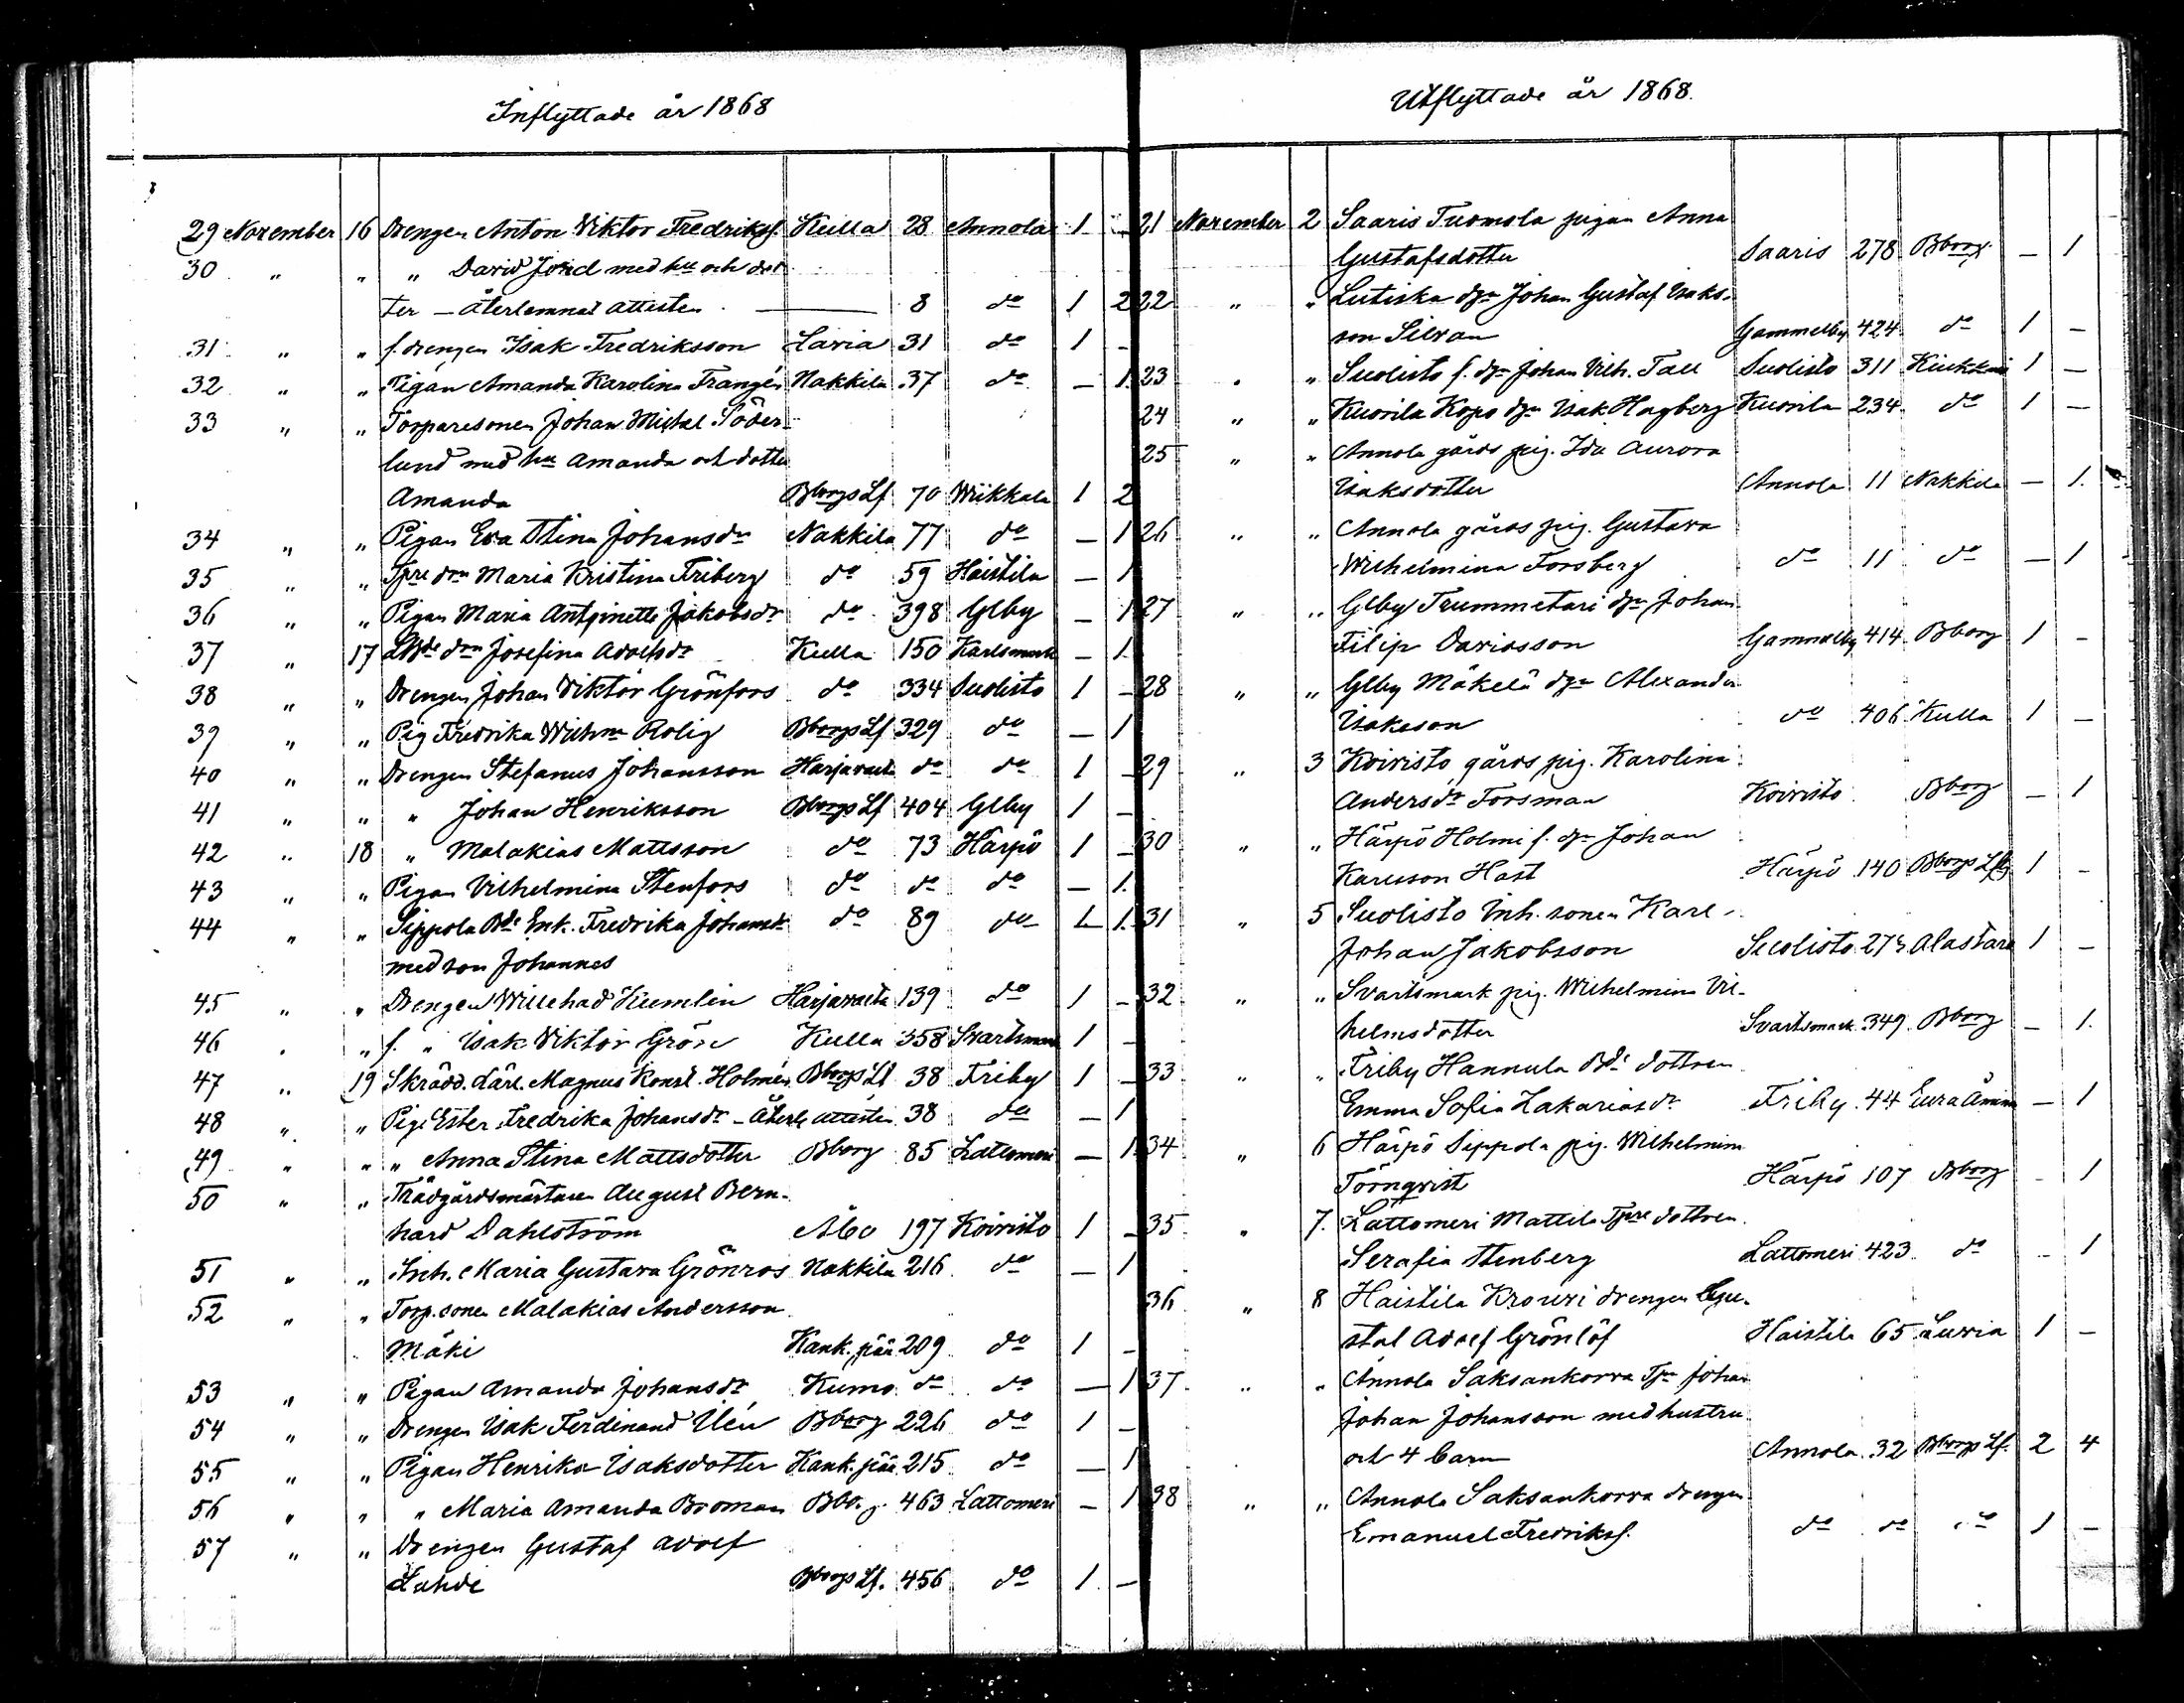 Inflyttade år 1868
29 November 16 Drengen Anton Viktor Fredrikss. Kulla 28 Annola 1 -
30 " " " David Jord med hu och dot
ter - Återlemnat attesten — 8 do 1 2
31 " " f. drengen Isak Fredriksson Lavia 31 do 1 -
32 " " Pigan Amanda Karolina Frangén Nakkila 37 do - 1
33 " " Torparesonen Johan Michel Söder-
lund med hu Amanda och dotter
Amanda Bborgs Lf 70 Wiikkala 1 2
34 " " Pigan Eva Stina Johansdr Nakkila 77 do - 1
35 " " Tpre drn Maria Kristina Friberg do 59 Haistila - 1
36 " " Pigan Maria Antoinette Jakobsdr do 398 Glby - 1
37 " 17 drn Josefina Adolfsdr Kulla 150 Karlsmark - 1
38 " " Drengen Johan Viktor Grönfors do 334 Suolisto 1 -
39 " " Pig Fredrika Wilhma Rolig Bborgs Lf 329 do - 1
40 " " Drengen Stefanus Johansson Harjavalta do do 1 -
41 " " " Johan Henriksson Bborgs Lf 404 Glby 1 -
42 " 18 " Malakias Mattsson do 73 Härpö 1 -
43 " " Pigan Vilhelmina Stenfors do do do - 1
44 " " Sippola Bde Enk. Fredrika Johansdr do 89 do 1 1
med son Johannes
45 " " Drengen Willehad Kumlin Harjavalta 139 do 1 -
46 " " f. " Isak Viktor Grön Kulla 358 Svartsmark 1 -
47 " 19 Skrädd. lärl. Magnus Konst. Holmén Bborgs Lf 38 Friby 1 -
48 " " Pig. Ester Fredrika Johansdr - Återl. attesten 38 do - 1
49 " " " Anna Stina Mattsdotter Bborg 85 Lattomeri - 1
50 " " Trädgårdsmästaren August Bern-
hard Dahlström Åbo 197 Koivisto 1 -
51 " " Inh. Maria Gustava Grönroos Nakkila 216 do - 1
52 " " Torp. sonen Malakias Andersson
Mäki Kank. pää 209 do 1 -
53 " " Pigan Amanda Johansdr Kumo do do - 1
54 " " Drengen Isak Ferdinand Ilén Bborg 226 do 1 -
55 " " Pigan Henrika Isaksdotter Kank. pää 215 do - 1
56 " " " Maria Amanda Broman Bborg 463 Lattomeri - 1
57 " " Drengen Gustaf Adolf
Lahde Bborgs Lf. 456 do 1 -
Utflyttade år 1868.
21 November 2 Saaris Tuomola pigan Anna
Gustafsdotter Saaris 278 Bborg - 1
22 " " Lutiska dgn Johan Gustaf Isaks-
son Silvan Gammelby 424 do 1 -
23 " " Suolisto f. dgn Johan Vilh. Tall Suolisto 311 Kiukkais 1 -
24 " " Kuorila Kopo dgn Isak Hagberg Kuorila 234 do 1 -
25 " " Annola gårds pig. Ida Aurora
Isaksdotter Annola 11 Nakkila - 1
26 " " Annola gårds pig. Gustava
Wilhelmina Forsberg do 11 do - 1
27 " " Glby Trummetari dgn Johan
Filip Davidsson Gammelby 414 Bborg 1 -
28 " " Glby Mäkelä dgn Alexander
Isaksson do 406 Kulla 1 -
29 " 3 Koivisto gårds pig. Karolina
Andersdr Forsman Koivisto Bborg - 1
30 " " Härpö Holmi f. dgn Johan
Karlsson Hast Härpö 140 Bborgs Lfg 1 -
31 " 5 Suolisto Inh. sonen Karl
Johan Jakobsson Suolisto 273 Alastaro 1 -
32 " " Svartsmark pig. Wilhelmina Vil-
helmsdotter Svartsmark 349 Bborg - 1
33 " " Friby Hannula Bds dottren
Emma Sofia Zakariasdr Friby 44 Eura Åminne - 1
34 " 6 Härpö Sippola pig. Wilhelmina
Törnqvist Härpö 107 Bborg - 1
35 " 7 Lattomeri Mattila Tpre dottren
Serafia Stenberg Lattomeri 423 do - 1
36 " 8 Haistila Krouvi drengen Gu-
staf Adolf Grönlöf Haistila 65 Luvia 1 -
37 " " Annola Saksankorva Tpn Johan
Johan Johansson med hustru
och 4 barn Annola 32 Bborgs Lf. 2 4
38 " " Annola Saksankorva drengen
Emanuel Fredrikss. do do do 1 -